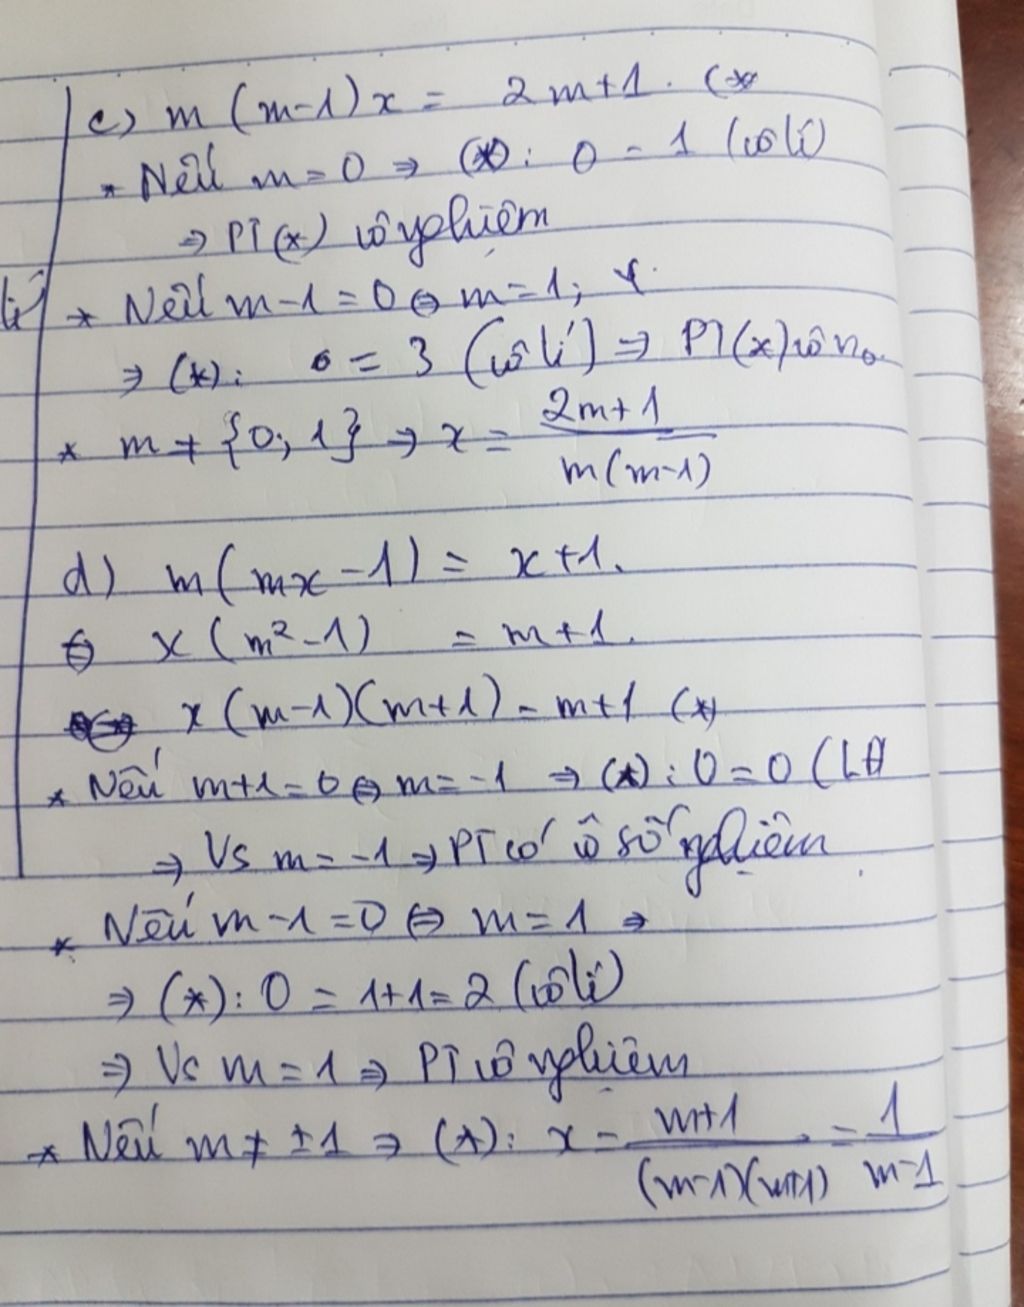 c) m (m-1) x = 2m+1. (*
* Nếu m = 0 ⇒ (*): 0 = 1 (vô lí)
⇒ PT (*) vô nghiệm
lí
* Nếu m-1 = 0 ⇔ m = 1;
⇒ (*): 0 = 3 (vô lí) ⇒ PT(*) vô no.
* m ≠ {0; 1} ⇒ x = \frac{2m+1}{m(m-1)}
d) m(mx-1) = x+1.
⇔ x(m²-1) = m+1.
x(m-1)(m+1) = m+1 (*)
* Nếu m+1=0 ⇔ m=-1 ⇒ (*): 0=0 (LĐ
⇒ Vs m = -1 ⇒ PT có vô số nghiệm
* Nếu m-1=0 ⇔ m=1 ⇒
⇒ (*): 0 = 1+1=2 (vô lí)
⇒ Vs m = 1 ⇒ PT vô nghiệm
* Nếu m ≠ ±1 ⇒ (*): x = \frac{m+1}{(m-1)(m+1)} = \frac{1}{m-1}